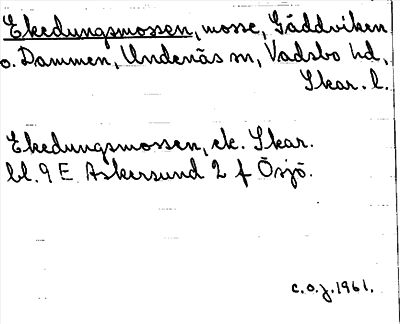 Ekedungsmossen, mosse, Gäddviken
o. Dammen, Undenäs sn, Vadsbo hd,
Skar. l.
Ekedungsmossen, ek. Skar.
bl. 9 E Askersund 2 f Ösjö.
c.o.j. 1961.